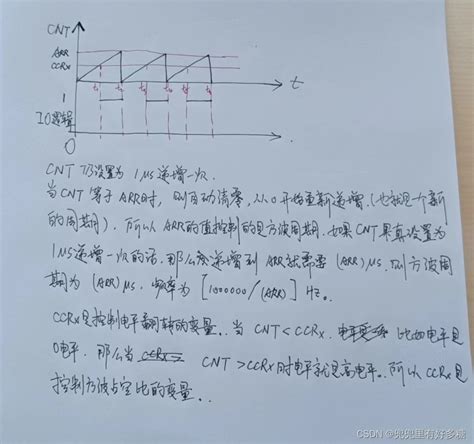 CNT
ARR
CCRx
t
1
IO逻辑
0
CNT 仍设置为 1us递增一次.
当CNT 等于 ARR时, 则自动清零, 从0 开始重新递增.(也就是一个新
的周期), 所以 ARR的值控制的是方波周期. 如果CNT 果真设置为
1us递增一次的话. 那么会递增到 ARR就需要 (ARR)us. 则方波周
期为 (ARR)us. 频率为 [1000000/(ARR)] Hz.
CCRx是控制电平翻转的变量.. 当 CNT<CCRx. 比如电平是
0电平. 那么当 CNT >CCRx时电平就是高电平. 所以 CCRx是
控制方波占空比的变量..
CSDN @兜兜里有好多糖